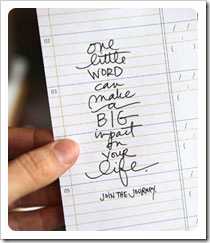 02
one
little
WORD
can
make
a
BIG
impact
on
your
life.
05
JOIN THE JOURNEY